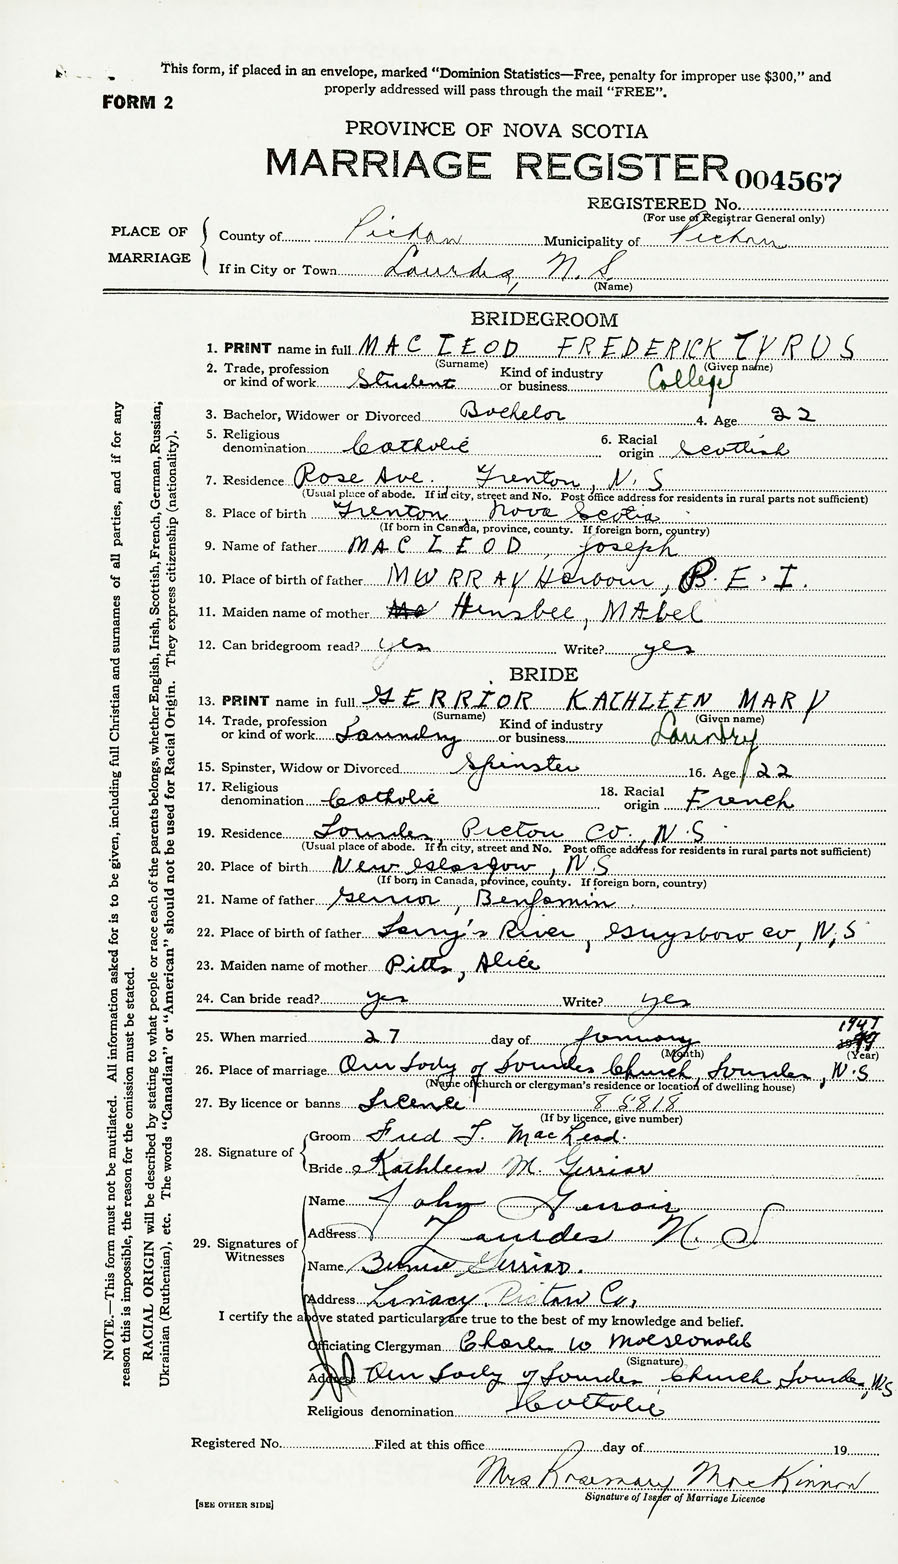 This form, if placed in an envelope, marked "Dominion Statistics—Free, penalty for improper use $300," and
properly addressed will pass through the mail "FREE".
FORM 2
PROVINCE OF NOVA SCOTIA
MARRIAGE REGISTER 004567
REGISTERED No.
(For use of Registrar General only)
PLACE OF MARRIAGE
County of Pictou Municipality of Pictou
If in City or Town Lourdes, N. S.
(Name)
BRIDEGROOM
1. PRINT name in full MAC LEOD FREDERICK TYRUS
(Surname) (Given name)
2. Trade, profession or kind of work Student Kind of industry or business College
3. Bachelor, Widower or Divorced Bachelor 4. Age 22
5. Religious denomination Catholic 6. Racial origin Scottish
7. Residence Rose Ave. Trenton, N. S
(Usual place of abode. If in city, street and No. Post office address for residents in rural parts not sufficient)
8. Place of birth Trenton, Nova Scotia
(If born in Canada, province, county. If foreign born, country)
9. Name of father MAC LEOD, Joseph
10. Place of birth of father MURRAY Harbour, P. E. I.
11. Maiden name of mother Hensbee, MAbel
12. Can bridegroom read? yes Write? yes
BRIDE
13. PRINT name in full GERRIOR KATHLEEN MARY
(Surname) (Given name)
14. Trade, profession or kind of work Laundry Kind of industry or business Laundry
15. Spinster, Widow or Divorced Spinster 16. Age 22
17. Religious denomination Catholic 18. Racial origin French
19. Residence Lourdes, Picton Co., N. S
(Usual place of abode. If in city, street and No. Post office address for residents in rural parts not sufficient)
20. Place of birth New Glasgow, N S
(If born in Canada, province, county. If foreign born, country)
21. Name of father Gerrior, Benjamin
22. Place of birth of father Larry's River, Guysboro Co, N, S
23. Maiden name of mother Pitts, Alice
24. Can bride read? yes Write? yes
25. When married 27 day of January 1947
(Month) (Year)
26. Place of marriage Our Lady of Lourdes Church, Lourdes, N. S
(Name of church or clergyman's residence or location of dwelling house)
27. By licence or banns Licence 85818
(If by licence, give number)
28. Signature of
Groom Fred T. MacLeod.
Bride Kathleen M. Gerrior
29. Signatures of Witnesses
Name John Gerrior
Address Lourdes N. S
Name Bernice Gerrior.
Address Linacy, Pictou Co,
I certify the above stated particulars are true to the best of my knowledge and belief.
Officiating Clergyman Charles W MacDonald
(Signature)
Address Our Lady of Lourdes Church Lourdes, N. S
Religious denomination Catholic
Registered No. Filed at this office day of 19
Mrs Rosemary MacKinnon
Signature of Issuer of Marriage Licence
[SEE OTHER SIDE]
NOTE.—This form must not be mutilated. All information asked for is to be given, including full Christian and surnames of all parties, and if for any
reason this is impossible, the reason for the omission must be stated.
RACIAL ORIGIN will be described by stating to what people or race each of the parents belongs, whether English, Irish, Scottish, French, German, Russian,
Ukrainian (Ruthenian), etc. The words "Canadian" or "American" should not be used for Racial Origin. They express citizenship (nationality).